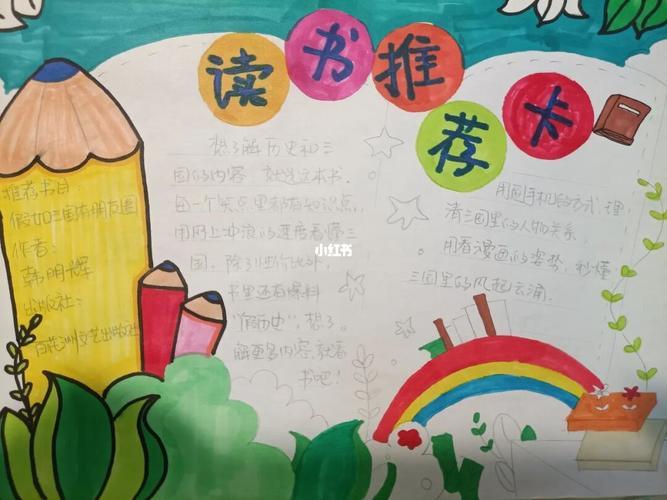 读书推荐卡
推荐书目:
假如三国有朋友圈
作者:
韩明辉
出版社:
百花洲文艺出版社
想了解历史和三
国的内容,就选这本书.
每一个笑点里都有知识点,
用网上冲浪的速度看懂三
国。除了
书里还有爆料
"假历史",想了
解更多内容,就看
书吧!
用画手机的方式,理
清三国里的人物关系,
用看漫画的姿势,秒懂
三国里的风起云涌.
小红书